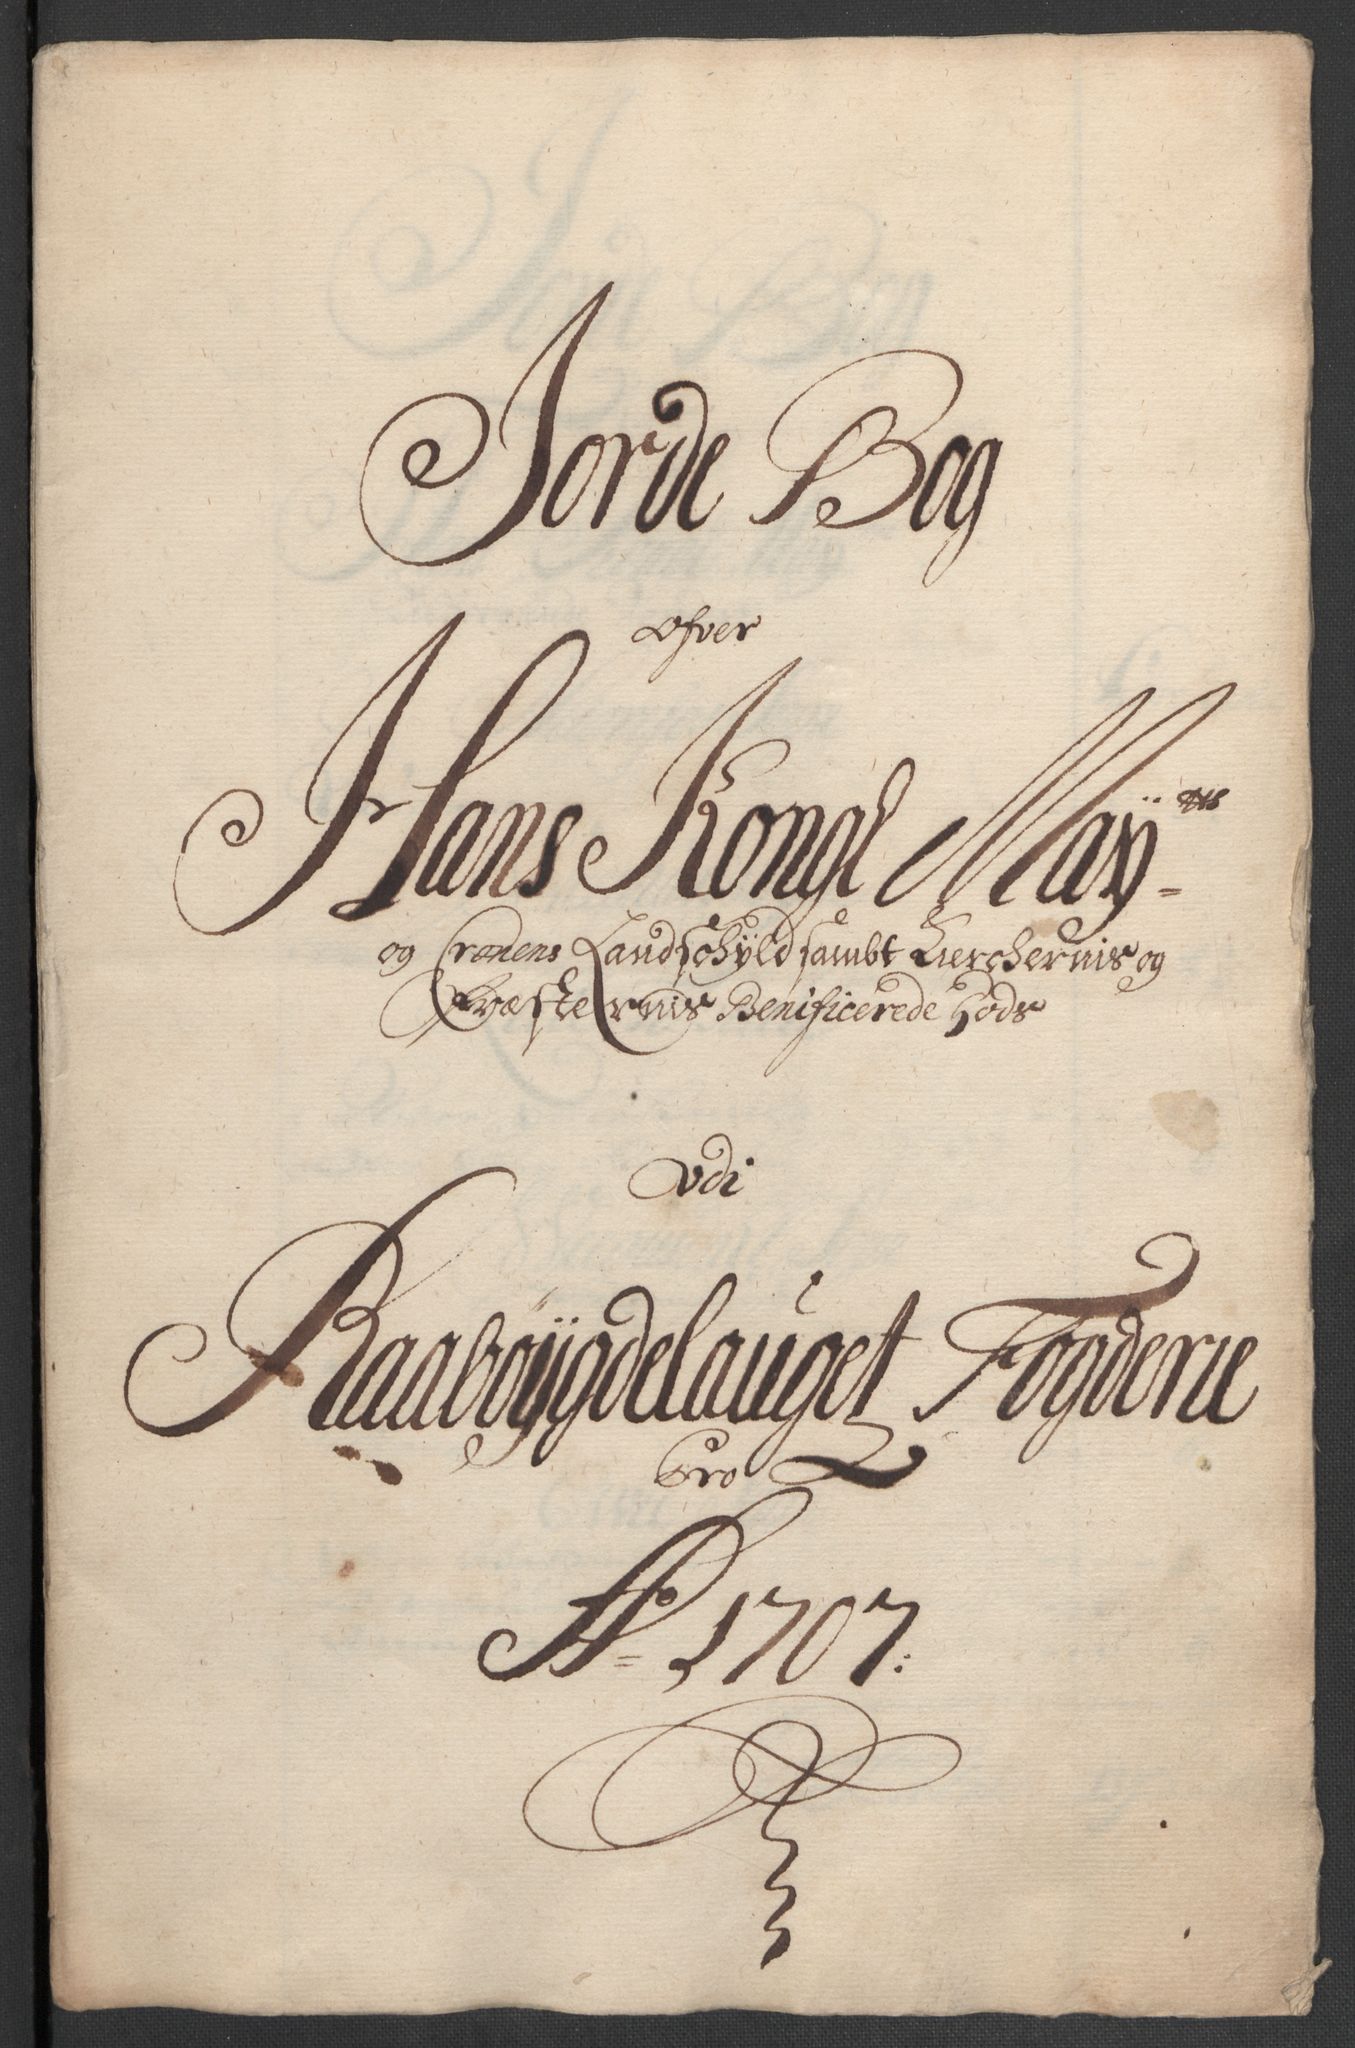 Jorde Bog
ofver
Hans Kongl Maÿ=ttis
og Cronens Landschÿld sambt Kierchernis og
Præsternis Benificerede Gods
vdi
Raabøÿgdelauget Fogderie
pro
Ao= 1707: